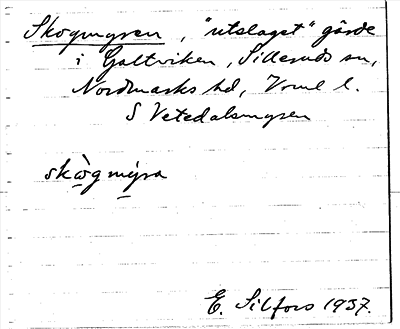 Skogmyren, "utslaget" gärde
i Galtviken, Silleruds sn,
Nordmarks hd, Vrml l.
S Vetedalsmyren
skò̤g mýra
E. Silfors 1937.